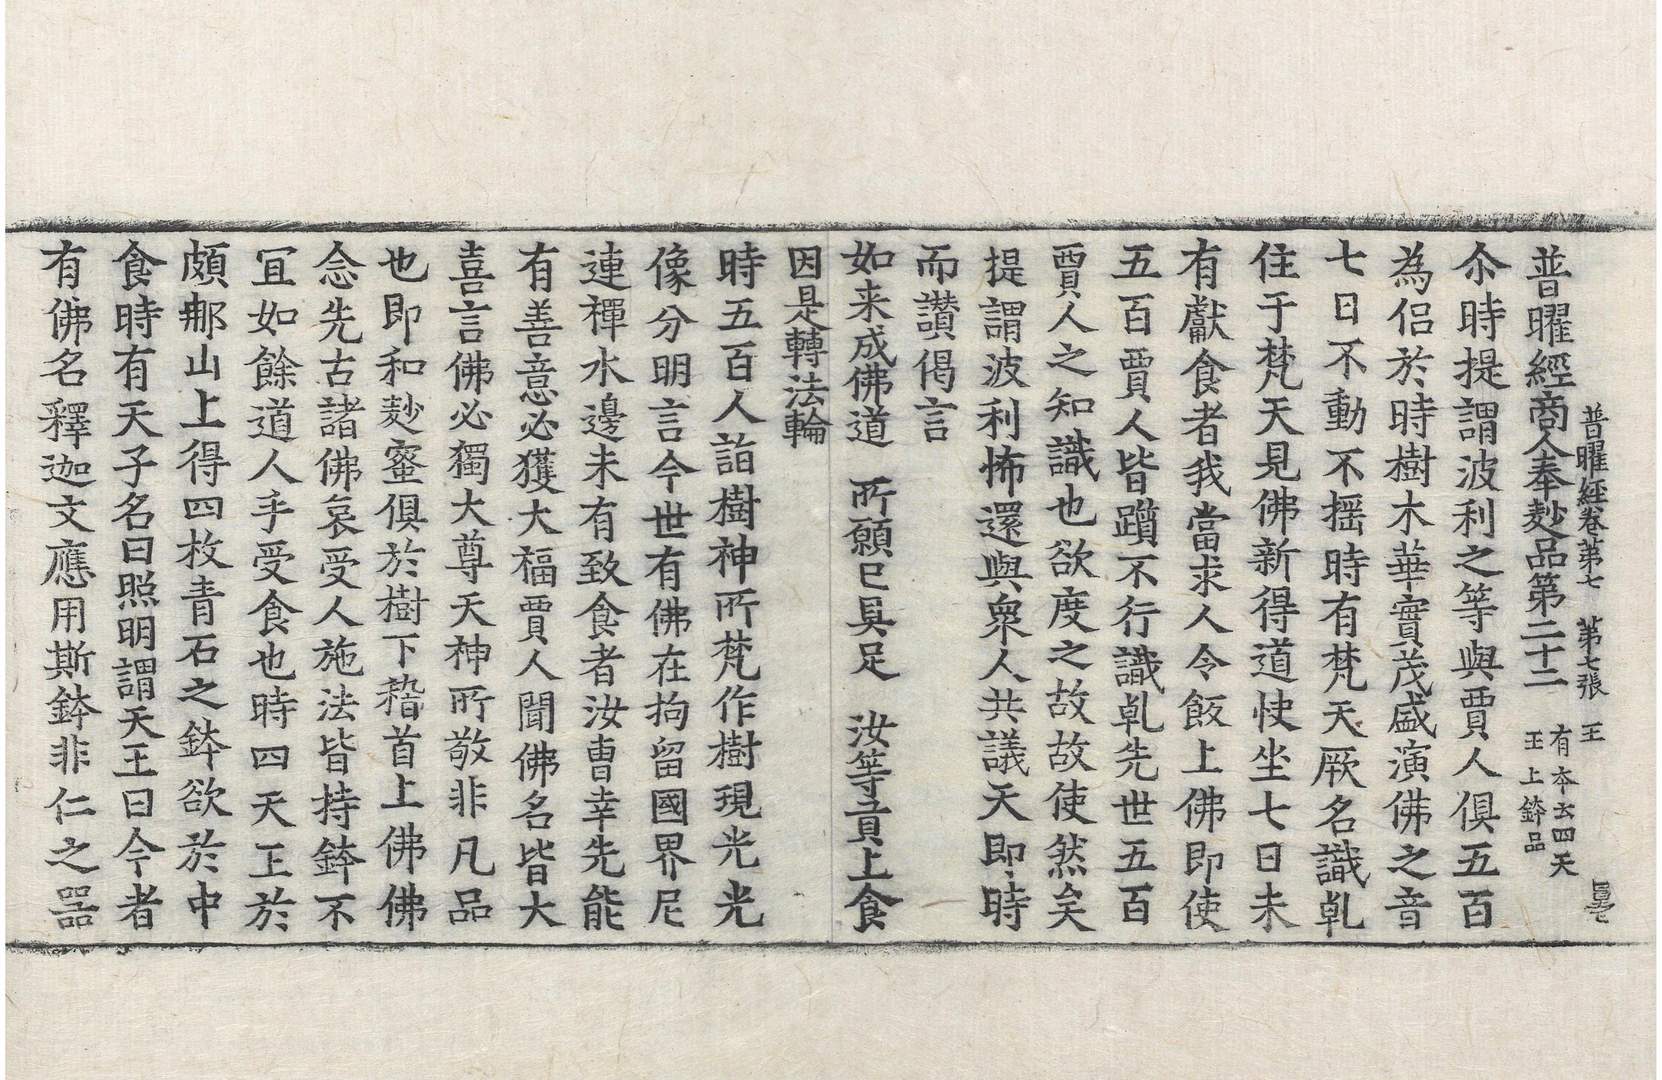 普曜經卷第七　第七張　王
普曜經商人奉麨品第二十二 有本云四天王上鉢品
尒時提謂波利之等與賈人俱五百
為侶於時樹木華實茂盛演佛之音
七日不動不揺時有梵天厥名識乹
住于梵天見佛新得道快坐七日未
有獻食者我當求人令飯上佛即使
五百賈人皆躓不行識乹先世五百
賈人之知識也欲度之故故使然矣
提謂波利怖還與衆人共議天即時
而讃偈言
如来成佛道　所願已具足　汝等貢上食
因是轉法輪
時五百人詣樹神所梵作樹現光光
像分明言今世有佛在拘留國界尼
連禪水邊未有致食者汝曹幸先能
有善意必獲大福賈人聞佛名皆大
喜言佛必獨大尊天神所敬非凡品
也即和麨蜜俱於樹下稽首上佛佛
念先古諸佛哀受人施法皆持鉢不
冝如餘道人手受食也時四天王於
頗那山上得四枚青石之鉢欲於中
食時有天子名曰照明謂天王曰今者
有佛名釋迦文應用斯鉢非仁之器